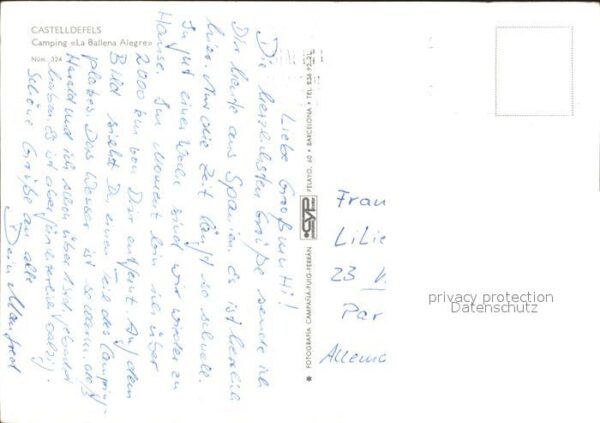 CASTELLDEFELS
Camping «La Ballena Alegre»
Núm. 324
Liebe Großmutti!
Die herzlichsten Grüße sende ich
Dir heute aus Spanien. Es ist herrlich
hier. Nur die Zeit läuft so schnell.
In gut einer Woche sind wir wieder zu
Hause. Im Moment bin ich über
2000 km von Dir entfernt. Auf dem
Bild siehst Du einen Teil des Camping-
platzes. Das Wasser ist so warm, daß
Harald und ich schon über 1 Std. gebadet
haben. Es ist aber fürchterlich salzig.
Schöne Grüße an alle
Dein Manfred
FOTOGRAFIA CAMPAÑA-PUIG-FERRÁN
CYP
PELAYO, 60 • BARCELONA • TEL.
Frau
Lilie
23
Par
Allema
privacy protection
Datenschutz